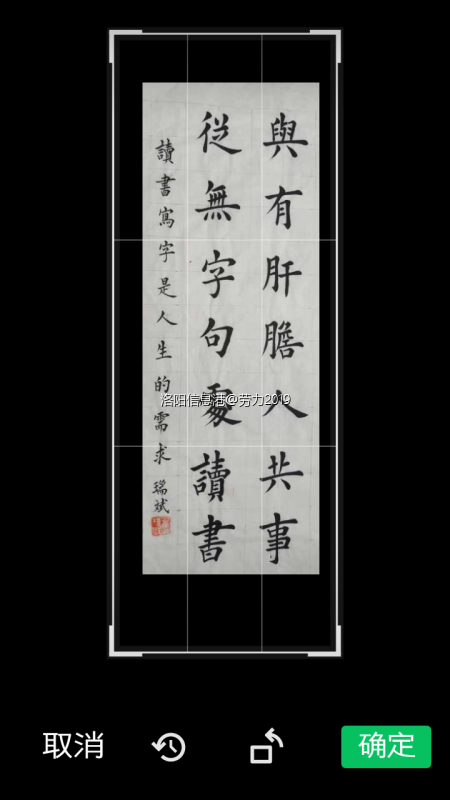 與有肝膽人共事
從無字句處讀書
讀書寫字是人生的需求
瑞斌
洛阳信息港@劳力2019
取消
确定